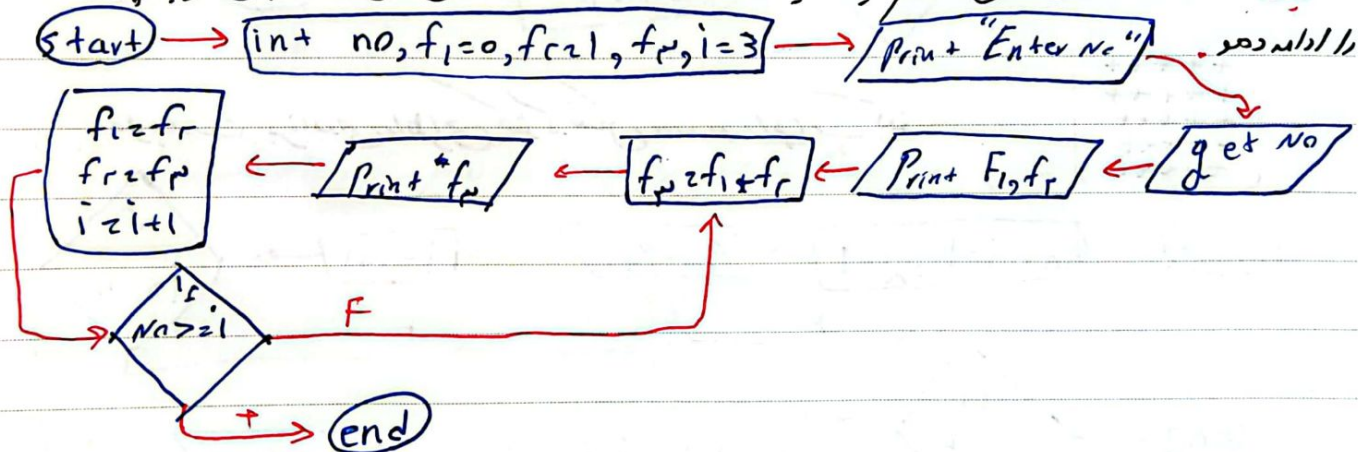 start
int no, f۱=0, f۲=1, f۳, i=3
Print "Enter No"
را ادامه دهد.
get No
Print F۱, f۲
f۳=f۱+f۲
Print "f۳
f۱=f۲
f۲=f۳
i=i+1
If
No>=i
F
T
end